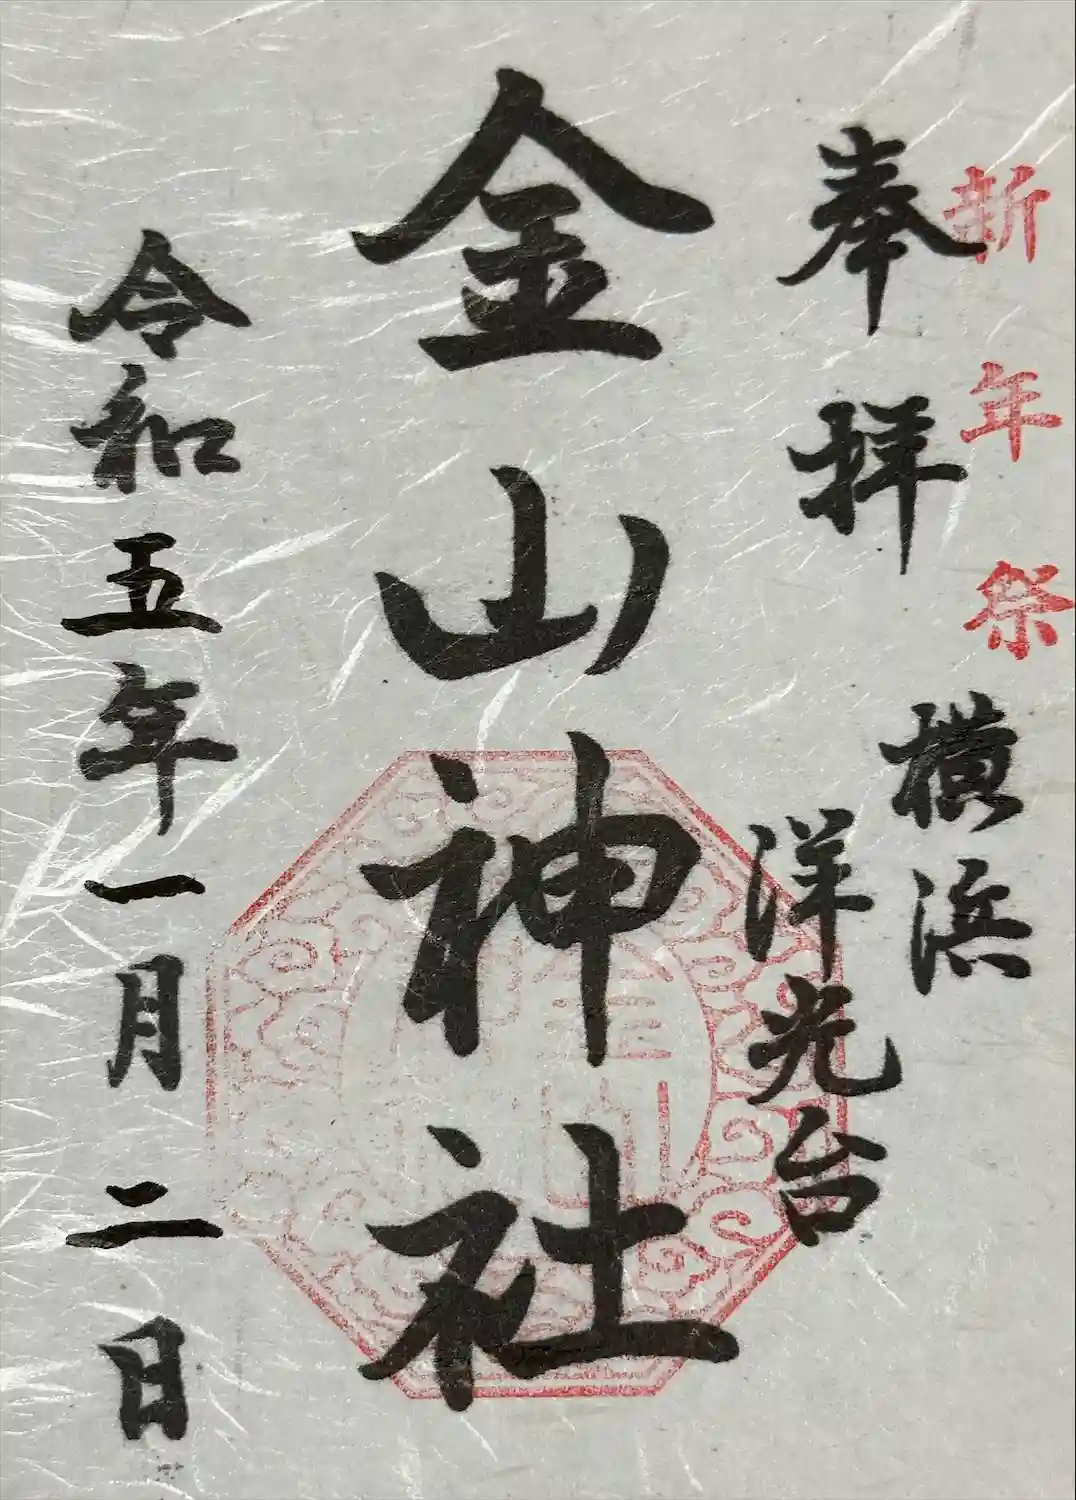 新年祭
奉拝
横浜
洋光台
金山神社
令和五年一月二日